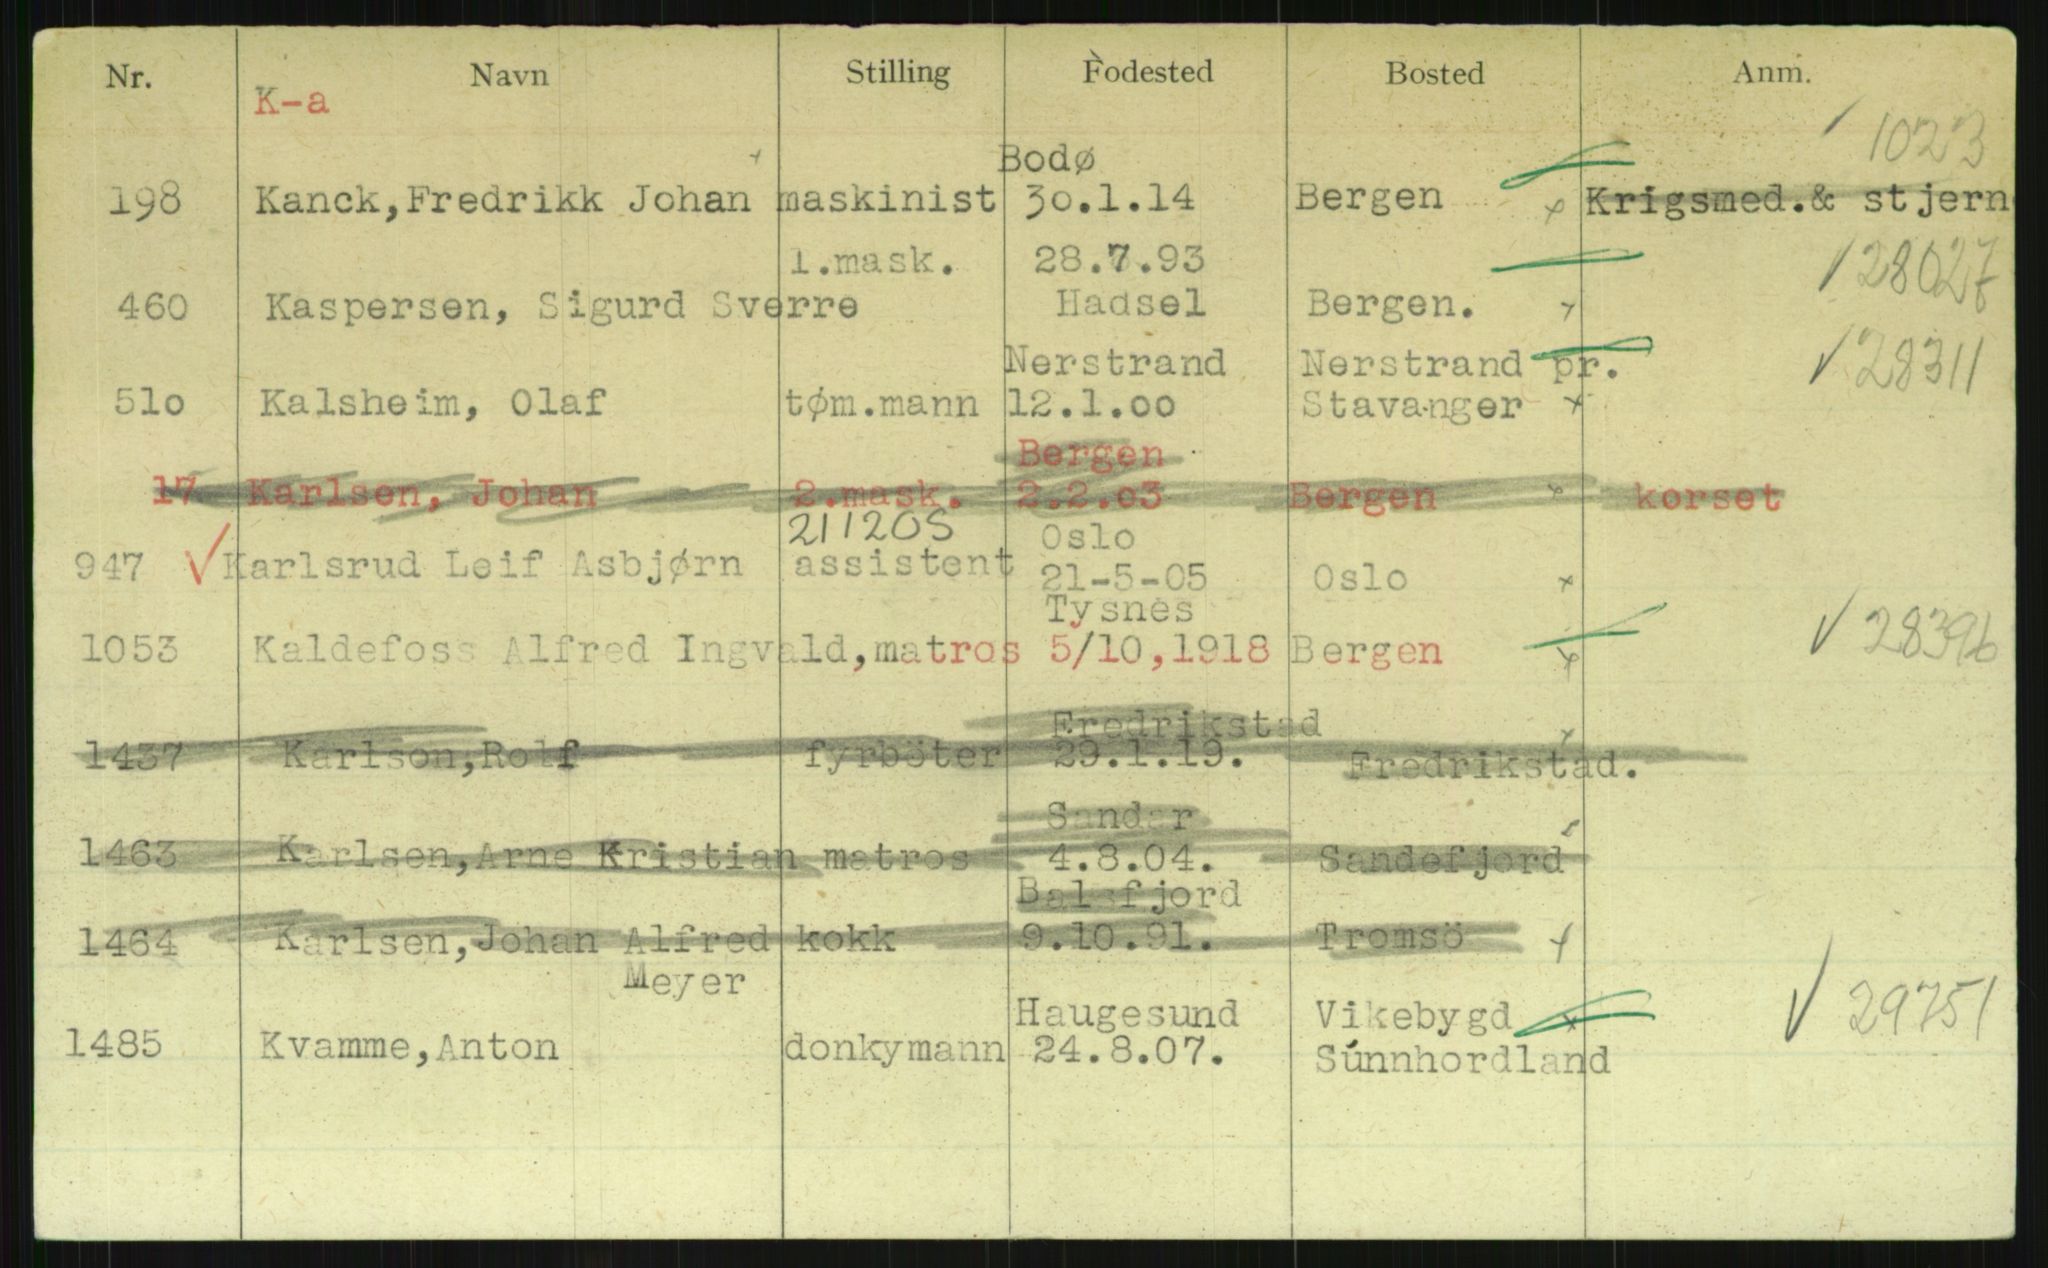 Nr. Navn Stilling Fodested Bosted Anm.
K-a
1023
Bodø
198 Kanck,Fredrikk Johan maskinist 30.1.14 Bergen x Krigsmed.& stjern
1.mask. 28.7.93 28027
460 Kaspersen, Sigurd Sverre Hadsel Bergen. x
Nerstrand Nerstrand pr. 28311
51o Kalsheim, Olaf tøm.mann 12.1.oo Stavanger x
Bergen
17 Karlsen, Johan 2.mask. 2.2.o3 Bergen x korset
211205 Oslo
947 Karlsrud Leif Asbjørn assistent 21-5-05 Oslo x
Tysnes
1053 Kaldefoss Alfred Ingvald,matros 5/10,1918 Bergen x 28396
Fredrikstad
1437 Karlson,Rolf fyrböter 29.1.19. Fredrikstad. x
Sandar
1463 Karlsen,Arne Kristian matros 4.8.04. Sandefjord
Balsfjord
1464 Karlsen,Johan Alfred kokk 9.10.91. Tromsö x
Meyer
Haugesund Vikebygd x 29751
1485 Kvamme,Anton donkymann 24.8.07. Sunnhordland